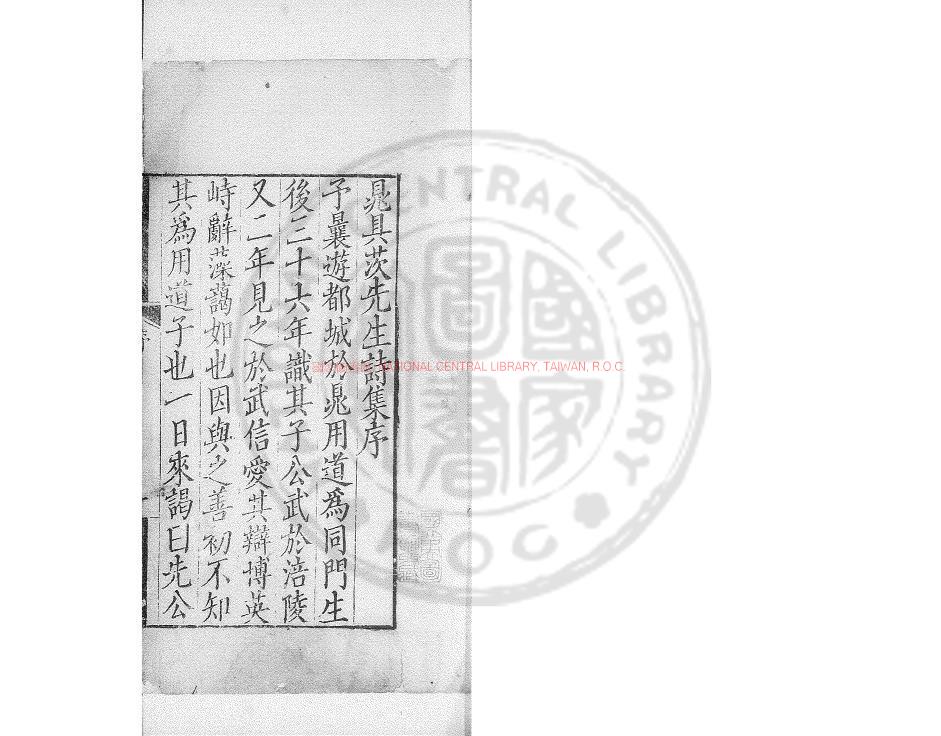 晁具茨先生詩集序
予曩遊都城於晁用道為同門生
後三十六年識其子公武於涪陵
又二年見之於武信愛其辯博英
峙辭藻藹如也因與之善初不知
其為用道子也一日來謁曰先公
NATIONAL CENTRAL LIBRARY, TAIWAN, R.O.C.
CENTRAL LIBRARY
ROC